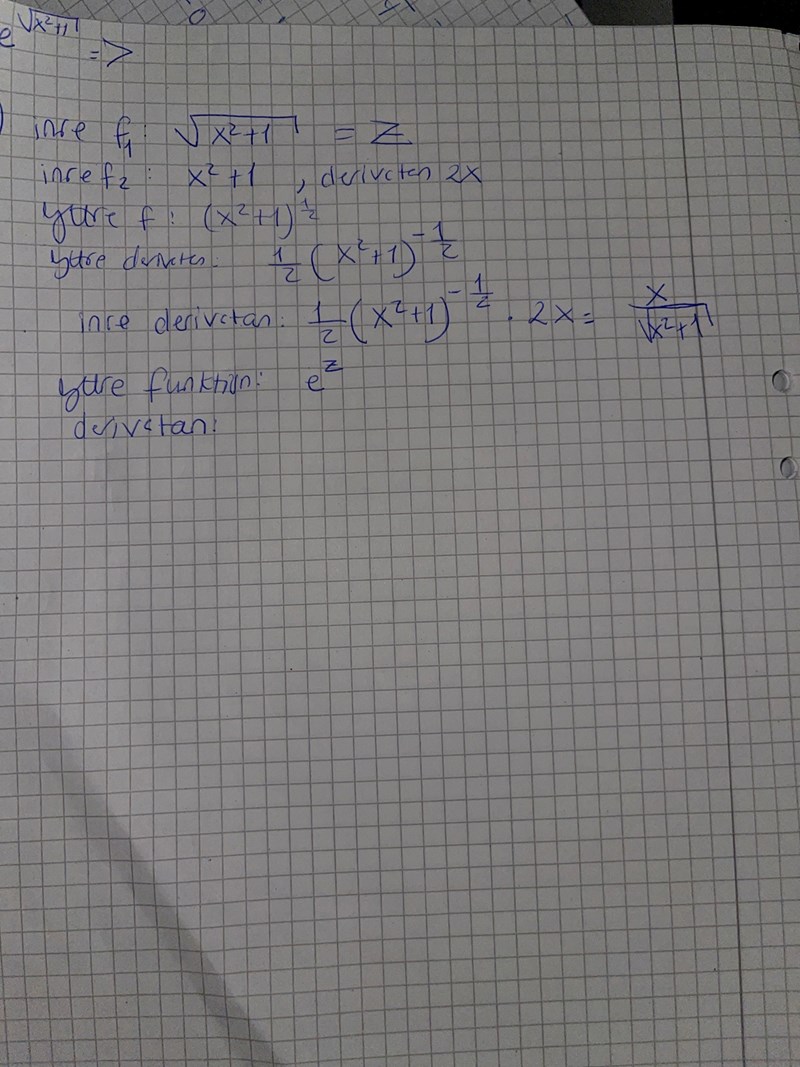 e^√(x²+1) =>
) inre f₁: √(x²+1) = Z
inre f₂: x²+1 , derivatan 2x
yttre f: (x²+1)^(1/2)
yttre derivatan: 1/2 (x²+1)^(-1/2)
inre derivatan: 1/2 (x²+1)^(-1/2) · 2x = x/√(x²+1)
yttre funktion: e^z
derivatan: